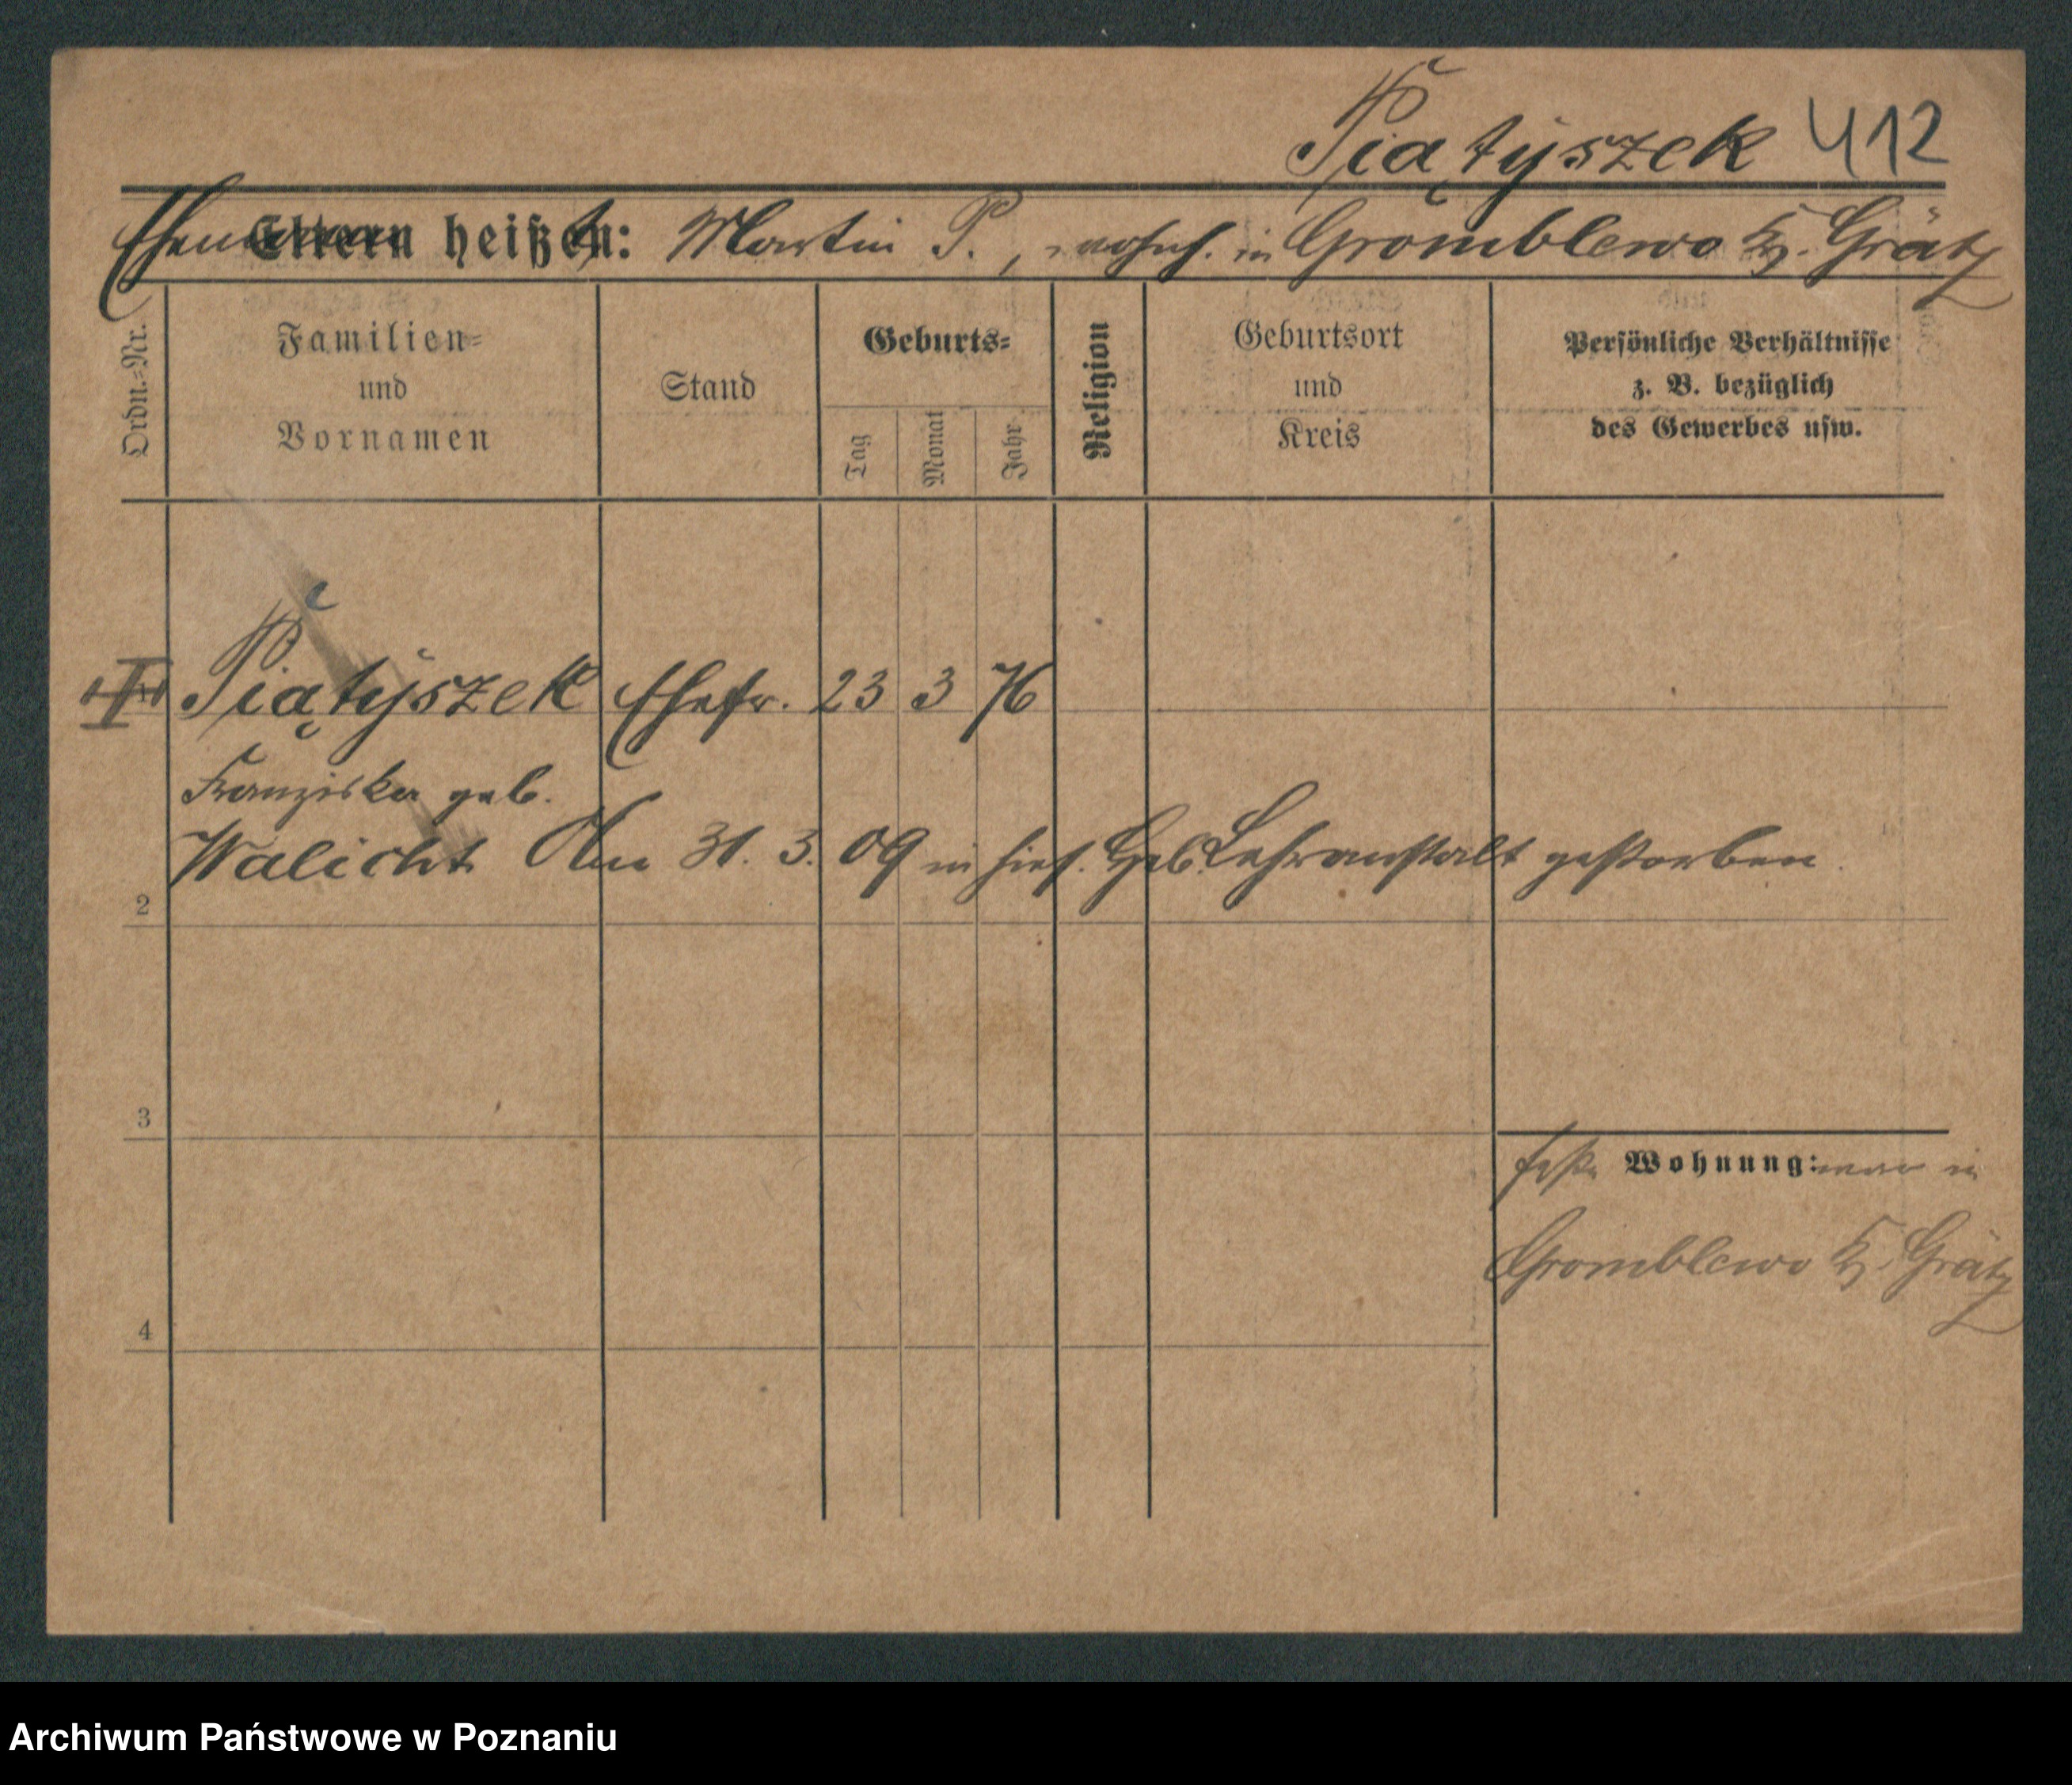 Piątyszek 412
Ehemann heißt: Martin P., wohnh. in Gromblewo Kr. Grätz
Ordn.=Nr.
Familien=
und
Vornamen
Stand
Geburts=
Tag
Monat
Jahr
Religion
Geburtsort
und
Kreis
Persönliche Verhältnisse
z. B. bezüglich
des Gewerbes usw.
Piątyszek Ehefr. 23 3 76
Franziska geb.
Walicht Am 31. 3. 09 in hies. Heb. Lehranstalt gestorben.
2
3
feste Wohnung: war in
Gromblewo Kr. Grätz
4
Archiwum Państwowe w Poznaniu